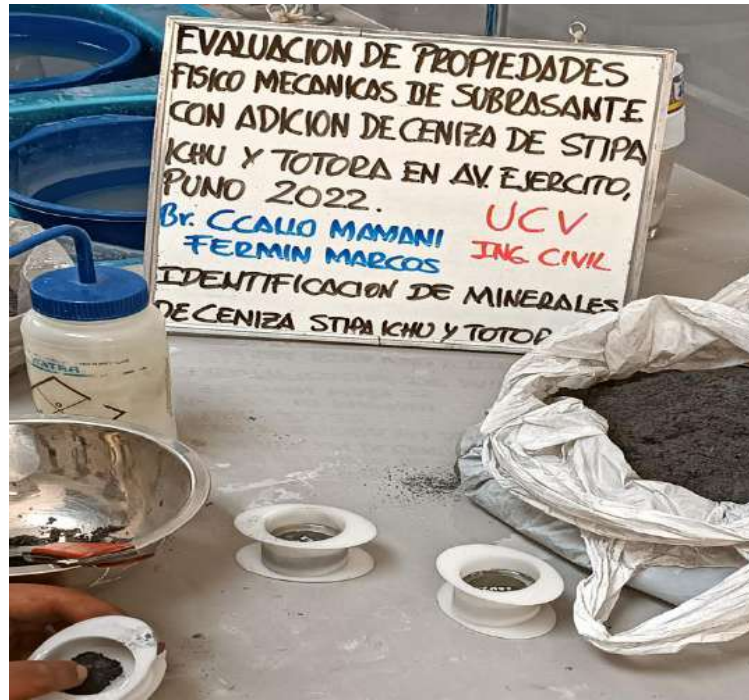 EVALUACION DE PROPIEDADES
FISICO MECANICAS DE SUBRASANTE
CON ADICION DE CENIZA DE STIPA
ICHU Y TOTORA EN AV. EJERCITO,
PUNO 2022.
UCV
Br. CCALLO MAMANI
FERMIN MARCOS
ING. CIVIL
IDENTIFICACION DE MINERALES
DE CENIZA STIPA ICHU Y TOTOR